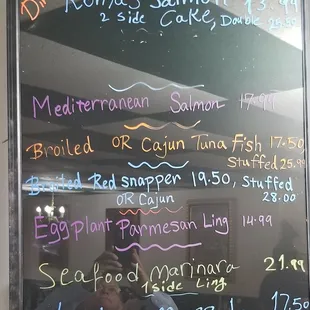 Salmon
2 side Cake, Double 26.50
Mediterranean Salmon 17.99
Broiled OR Cajun Tuna Fish 17.50
Stuffed 25.99
Broiled Red snapper 19.50, Stuffed
OR Cajun 28.00
Eggplant Parmesan Ling 14.99
Seafood marinara 21.99
1 side Ling
17.50